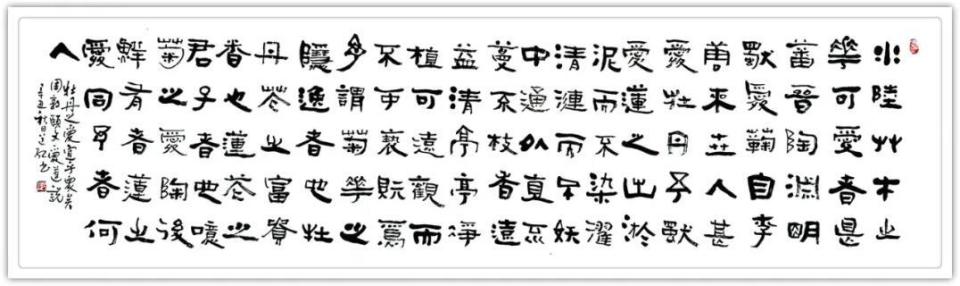 水陸艸木之
華可愛者甚
蕃晉陶淵明
獨愛鞠自李
唐來世人甚
愛牡丹予獨
愛蓮之出淤
泥而不染濯
清漣而不妖
中通外直不
蔓不枝香遠
益清亭亭淨
植可遠觀而
不可褻翫焉
予謂菊華之
隱逸者也牡
丹花之富貴
者也蓮花之
君子者也噫
菊之愛陶後
鮮有者蓮之
愛同予者何
人
牡丹之愛宜乎衆矣
周敦頤文愛蓮說
辛丑秋日書